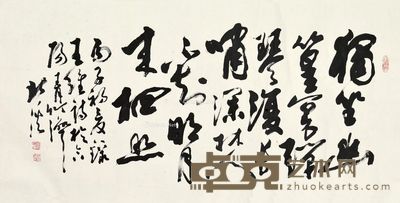 獨坐幽
篁裏彈
琴復長
嘯深林人
不知明月
來相照
丙子初夏錄
王維詩於
卓克艺术网
zhuokearts.com